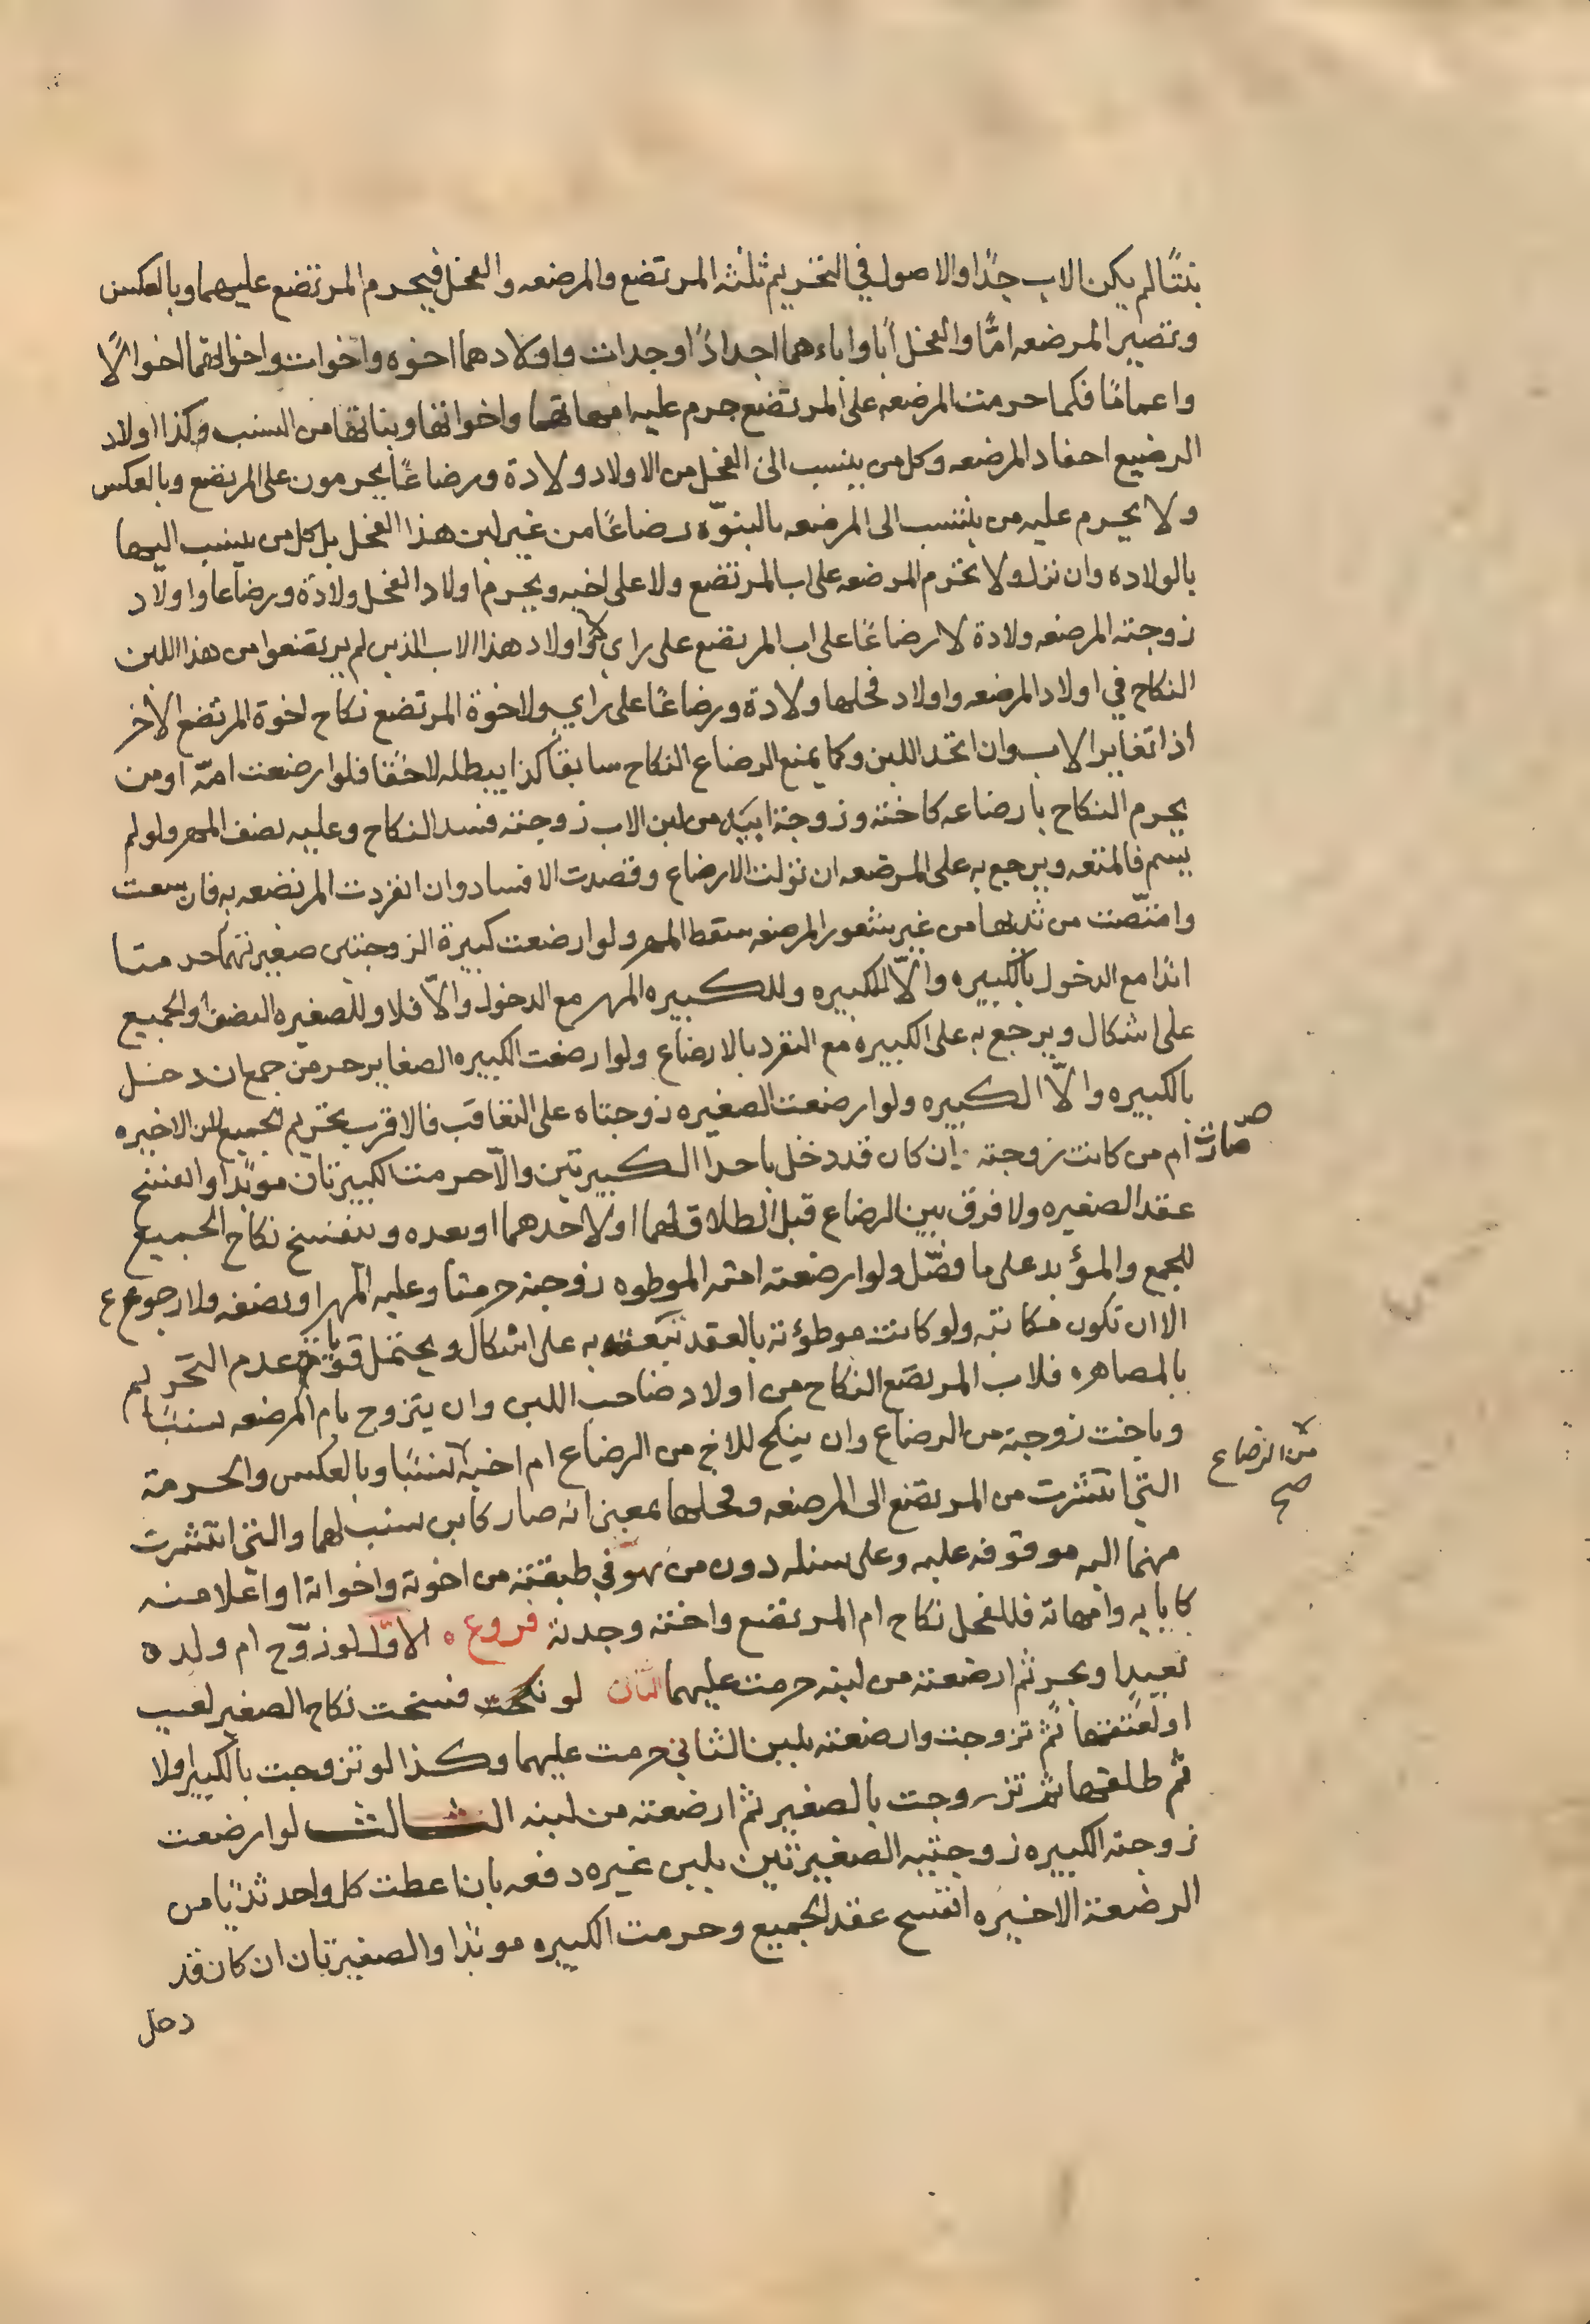 بنتًا لم يكن الاب جدًا والاصول في التحريم ثلثه المرتضع والمرضعه والفحل فيحرم المرتضع عليهما وبالعكس
وتصير المرضعه امًّا والفحل أبا واباءهما اجدادًا وجدات واولادهما اخوه واخوات واخوالهما اخوالًا
واعمامًا فكما حرمت المرضعه على المرتضع حرم عليه امهاتها واخواتها وبناتها من النسب وكذا اولاد
الرضيع احفاد المرضعه وكل من ينسب الى الفحل من الاولاد ولادة ورضاعًا يحرمون على المرتضع وبالعكس
ولا يحرم عليه من ينتسب الى المرضعه بالبنوّه رضاعًا من غير لبن هذا الفحل بل كل من ينسب اليها
بالولاده وان نزل ولا تحرم المرضعه على اب المرتضع ولا على اخيه ويحرم اولاد الفحل ولادة ورضاعا واولاد
زوجته المرضعه ولادة لا رضاعًا على اب المرتضع على راي ولاولاد هذا الاب الذين لم يرتضعوا من هذا اللبن
النكاح في اولاد المرضعه واولاد فحلها ولادة ورضاعًا على راي ولاخوة المرتضع نكاح اخوة المرتضع الآخر
اذا تغاير الاب وان اتحد اللبن وكما يمنع الرضاع النكاح سابقًا كذا يبطله لاحقا فلو ارضعت امّه او من
يحرم النكاح بارضاعه كاخته وزوجة ابيه من لبن الاب زوجته فسد النكاح وعليه نصف المهر ولو لم
يسم فالمتعه ويرجع به على المرضعه ان تولت الارضاع وقصدت الافساد وان انفردت المرتضعه به فان سعت
وامتصّت من ثديها من غير شعور المرضعه سقط المهر ولو ارضعت كبيرة الزوجتين صغيرتهما حرمتا
ابدًا مع الدخول بالكبيره والّا الكبيره وللكبيره المهر مع الدخول والّا فلا وللصغيره النصف او الجميع
على اشكال ويرجع به على الكبيره مع التفرد بالارضاع ولو ارضعت الكبيره الصغاير حرمن جمع ان دخل
بالكبيره والّا الكبيره ولو ارضعت الصغيره زوجتاه على التعاقب فالاقرب تحريم الجميع لان الاخيره
صارت ام من كانت زوجته ان كان قد دخل باحدا الكبيرتين والّا حرمت الكبيرتان مؤبدًا وانفسخ
عقد الصغيره ولا فرق بين الرضاع قبل الطلاق لهما اولاحدهما اوبعده وينفسخ نكاح الجميع
للجمع والمؤبد على ما فصّل ولو ارضعت امته الموطوه زوجته حرمتا وعليه المهر اونصفه ولا رجوع
الا ان تكون مكاتبه ولو كانت موطؤته بالعقد تبعته به على اشكال ويحتمل قويًا عدم التحريم
بالمصاهره فلاب المرتضع النكاح من اولاد صاحب اللبن وان يتزوج بام المرضعه نسبًا
وباخت زوجته من الرضاع وان ينكح للاخ من الرضاع ام اخيه نسبًا وبالعكس والحرمة
من الرضاع
صح
التي انتشرت من المرتضع الى المرضعه وفحلها بمعنى انه صار كابن نسب لهما والتي انتشرت
منهما اليه موقوفه عليه وعلى نسله دون من هو في طبقته من اخوته واخواته او اعلا منه
كابايه وامهاته فللفحل نكاح ام المرتضع واخته وجدته فروع الاوّل لو زوّج ام ولده
بعبد او بحر ثم ارضعته من لبنه حرمت عليهما الثان لو نكحت فسخت نكاح الصغير لعيب
اولعتقها ثم تزوجت وارضعته بلبن الثاني حرمت عليهما وكذا لو تزوجت بالكبير اولا
ثم طلقها ثم تزوجت بالصغير ثم ارضعته من لبنه الثالث لو ارضعت
زوجته الكبيره زوجتيه الصغيرتين بلبن غيره دفعه بان اعطت كل واحد ثديا من
الرضعة الاخيره انفسح عقد الجميع وحرمت الكبيره مؤبدًا والصغيرتان ان كان قد
دخل